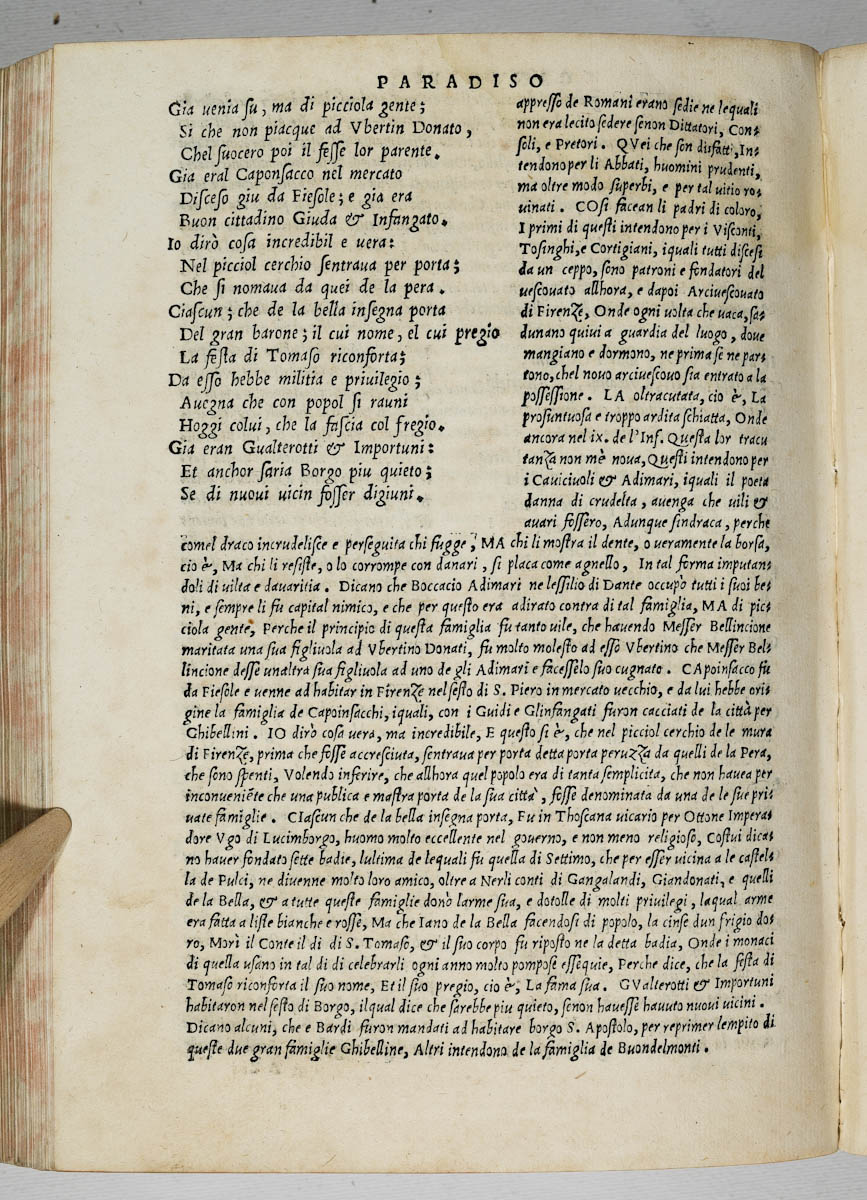 PARADISO
Gia uenia su, ma di picciola gente;
Si che non piacque ad Vbertin Donato,
Chel suocero poi il fesse lor parente.
Gia eral Caponsacco nel mercato
Disceso giu da Fiesole; e gia era
Buon cittadino Giuda & Infangato.
Io dirò cosa incredibil e uera:
Nel picciol cerchio sentraua per porta;
Che si nomaua da quei de la pera.
Ciascun; che de la bella insegna porta
Del gran barone; il cui nome, el cui pregio
La festa di Tomaso riconforta;
Da esso hebbe militia e priuilegio;
Auegna che con popol si rauni
Hoggi colui, che la fascia col fregio.
Gia eran Gualterotti & Importuni:
Et anchor saria Borgo piu quieto;
Se di nuoui uicin fosser digiuni.
appresso de Romani erano sedie ne lequali
non era lecito sedere senon Dittatori, Con-
soli, e Pretori. QVei che son disfatti, In-
tendono per li Abbati, huomini prudenti,
ma oltre modo superbi, e per tal uitio ro-
uinati. COsi facean li padri di coloro,
I primi di questi intendono per i Visconti,
Tosinghi, e Cortigiani, iquali tutti discesi
da un ceppo, sono patroni e fondatori del
uescouato allhora, e dapoi Arciuescouato
di Firenze, Onde ogni uolta che uaca, sa-
dunano quiui a guardia del luogo, doue
mangiano e dormono, ne prima se ne par-
tono, chel nouo arciuescouo sia entrato a la
possessione. LA oltracutata, cio è, La
prosuntuosa e troppo ardita schiatta, Onde
ancora nel ix. de l'Inf. Questa lor tracu
tanza non mè noua, Questi intendono per
i Cauiciuoli & Adimari, iquali il poeta
danna di crudelta, auenga che uili &
auari fossero, Adunque sindraca, perche
comel draco incrudelisce e perseguita chi fugge, MA chi li mostra il dente, o ueramente la borsa,
cio è, Ma chi li resiste, o lo corrompe con danari, si placa come agnello, In tal forma imputan-
doli di uilta e dauaritia. Dicano che Boccacio Adimari ne lessilio di Dante occupò tutti i suoi be-
ni, e sempre li fu capital nimico, e che per questo era adirato contra di tal famiglia, MA di pic-
ciola gente, Perche il principio di questa famiglia fu tanto uile, che hauendo Messer Bellincione
maritata una sua figliuola ad Vbertino Donati, fu molto molesto ad esso Vbertino che Messer Bel-
lincione desse unaltra sua figliuola ad uno de gli Adimari e facesselo suo cugnato. CApoinsacco fu
da Fiesole e uenne ad habitar in Firenze nel sesto di S. Piero in mercato uecchio, e da lui hebbe ori-
gine la famiglia de Capoinsacchi, iquali, con i Guidi e Glinfangati furon cacciati de la città per
Ghibellini. IO dirò cosa uera, ma incredibile, E questo si è, che nel picciol cerchio de le mura
di Firenze, prima che fosse accresciuta, sentraua per porta detta porta peruzza da quelli de la Pera,
che sono spenti, Volendo inferire, che allhora quel popolo era di tanta semplicita, che non hauea per
inconueniẽte che una publica e mastra porta de la sua città, fosse denominata da una de le sue pri-
uate famiglie. CIascun che de la bella insegna porta, Fu in Thoscana uicario per Ottone Impera-
dore Vgo di Lucimborgo, huomo molto eccellente nel gouerno, e non meno religioso, Costui dica-
no hauer fondato sette badie, lultima de lequali fu quella di Settimo, che per esser uicina a le castel-
la de Pulci, ne diuenne molto loro amico, oltre a Nerli conti di Gangalandi, Giandonati, e quelli
de la Bella, & a tutte queste famiglie donò larme sua, e dotolle di molti priuilegi, laqual arme
era fatta a liste bianche e rosse, Ma che Iano de la Bella facendosi di popolo, la cinse dun frigio do-
ro, Morì il Conte il di di S. Tomaso, & il suo corpo fu riposto ne la detta badia, Onde i monaci
di quella usano in tal di di celebrarli ogni anno molto pompose essequie, Perche dice, che la festa di
Tomaso riconforta il suo nome, Et il suo pregio, cio è, La fama sua. GValterotti & Importuni
habitaron nel sesto di Borgo, ilqual dice che sarebbe piu quieto, senon hauesse hauuto nuoui uicini.
Dicano alcuni, che e Bardi furon mandati ad habitare borgo S. Apostolo, per reprimer lempito di
queste due gran famiglie Ghibelline, Altri intendono de la famiglia de Buondelmonti.